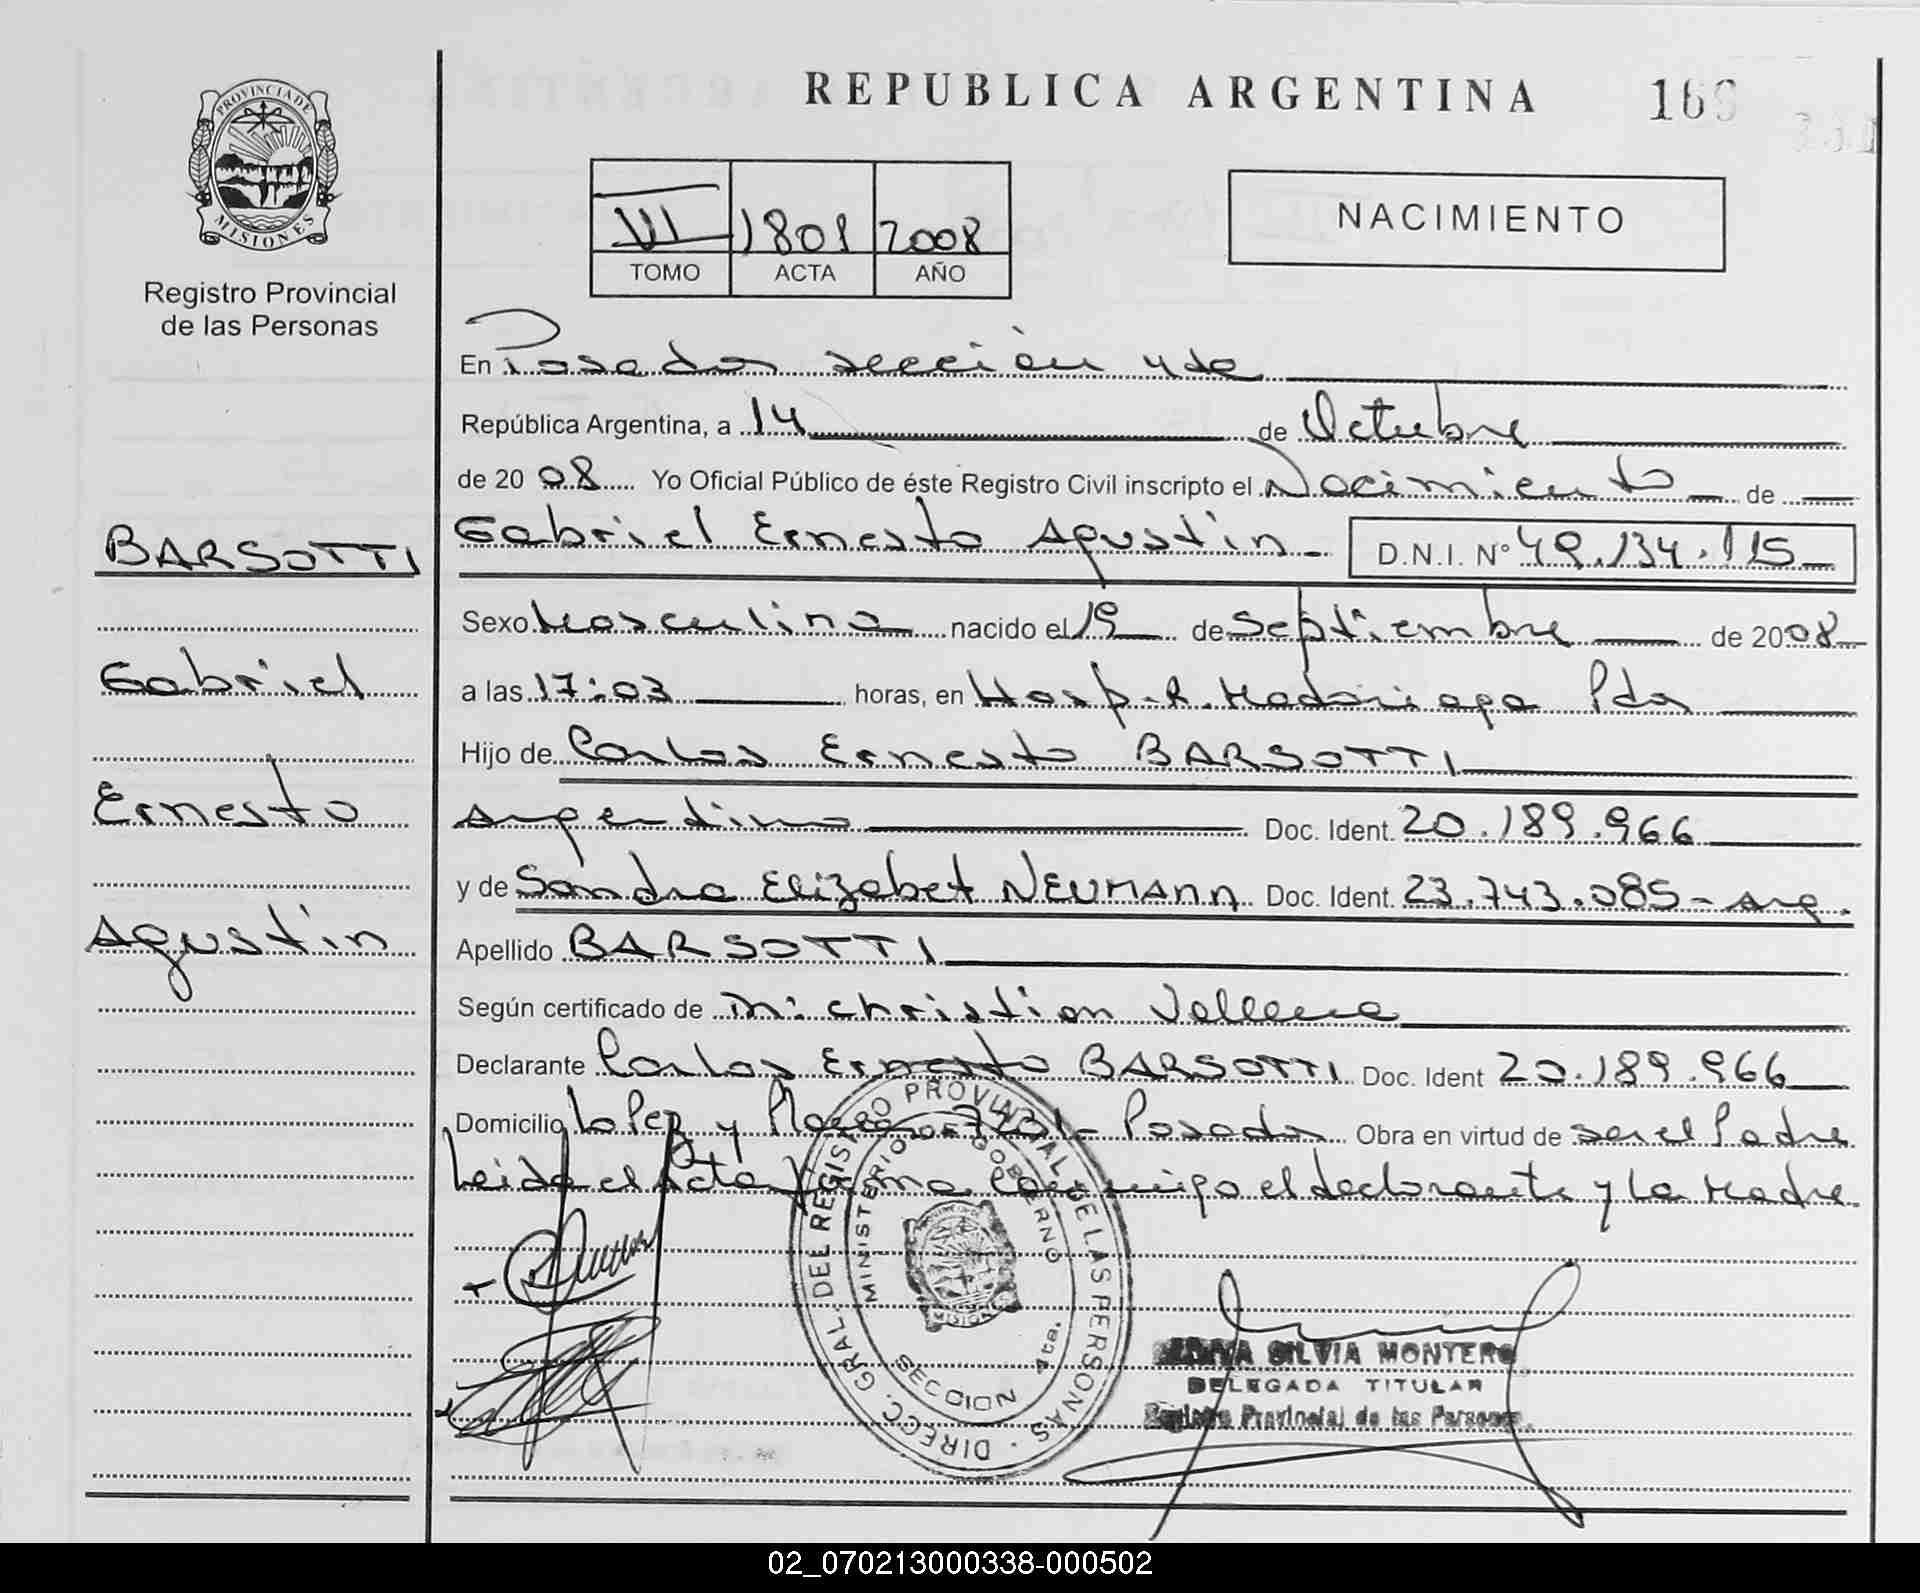 REPUBLICA ARGENTINA
PROVINCIA DE
MISIONES
Registro Provincial
de las Personas
NACIMIENTO
VI 1801 2008
TOMO ACTA AÑO
En Posadas sección 4ta
República Argentina, a 14 de Octubre
de 2008 Yo Oficial Público de éste Registro Civil inscripto el Nacimiento de
BARSOTTI
Gabriel Ernesto Agustin D.N.I. N° 49.134.115
Sexo Masculino nacido el 19 de Septiembre de 2008
Gabriel
a las 17:03 horas, en Hosp. R. Madariaga Pdas
Hijo de Carlos Ernesto BARSOTTI
Ernesto
Argentino Doc. Ident. 20.189.966
y de Sandra Elizabet NEUMANN Doc. Ident. 23.743.085 - Arg.
Agustin
Apellido BARSOTTI
Según certificado de Christian
Declarante Carlos Ernesto BARSOTTI Doc. Ident 20.189.966
Domicilio Lopez y Planes Posadas Obra en virtud de ser el Padre
Leida el Acta firma conmigo el declarante y la Madre
DIRECC. GRAL. DEL REGISTRO PROVINCIAL DE LAS PERSONAS
MINISTERIO GOBIERNO
MISIONES
SECCION 4ta.
SILVIA MONTERO
DELEGADA TITULAR
Registro Provincial de las Personas
02_070213000338-000502